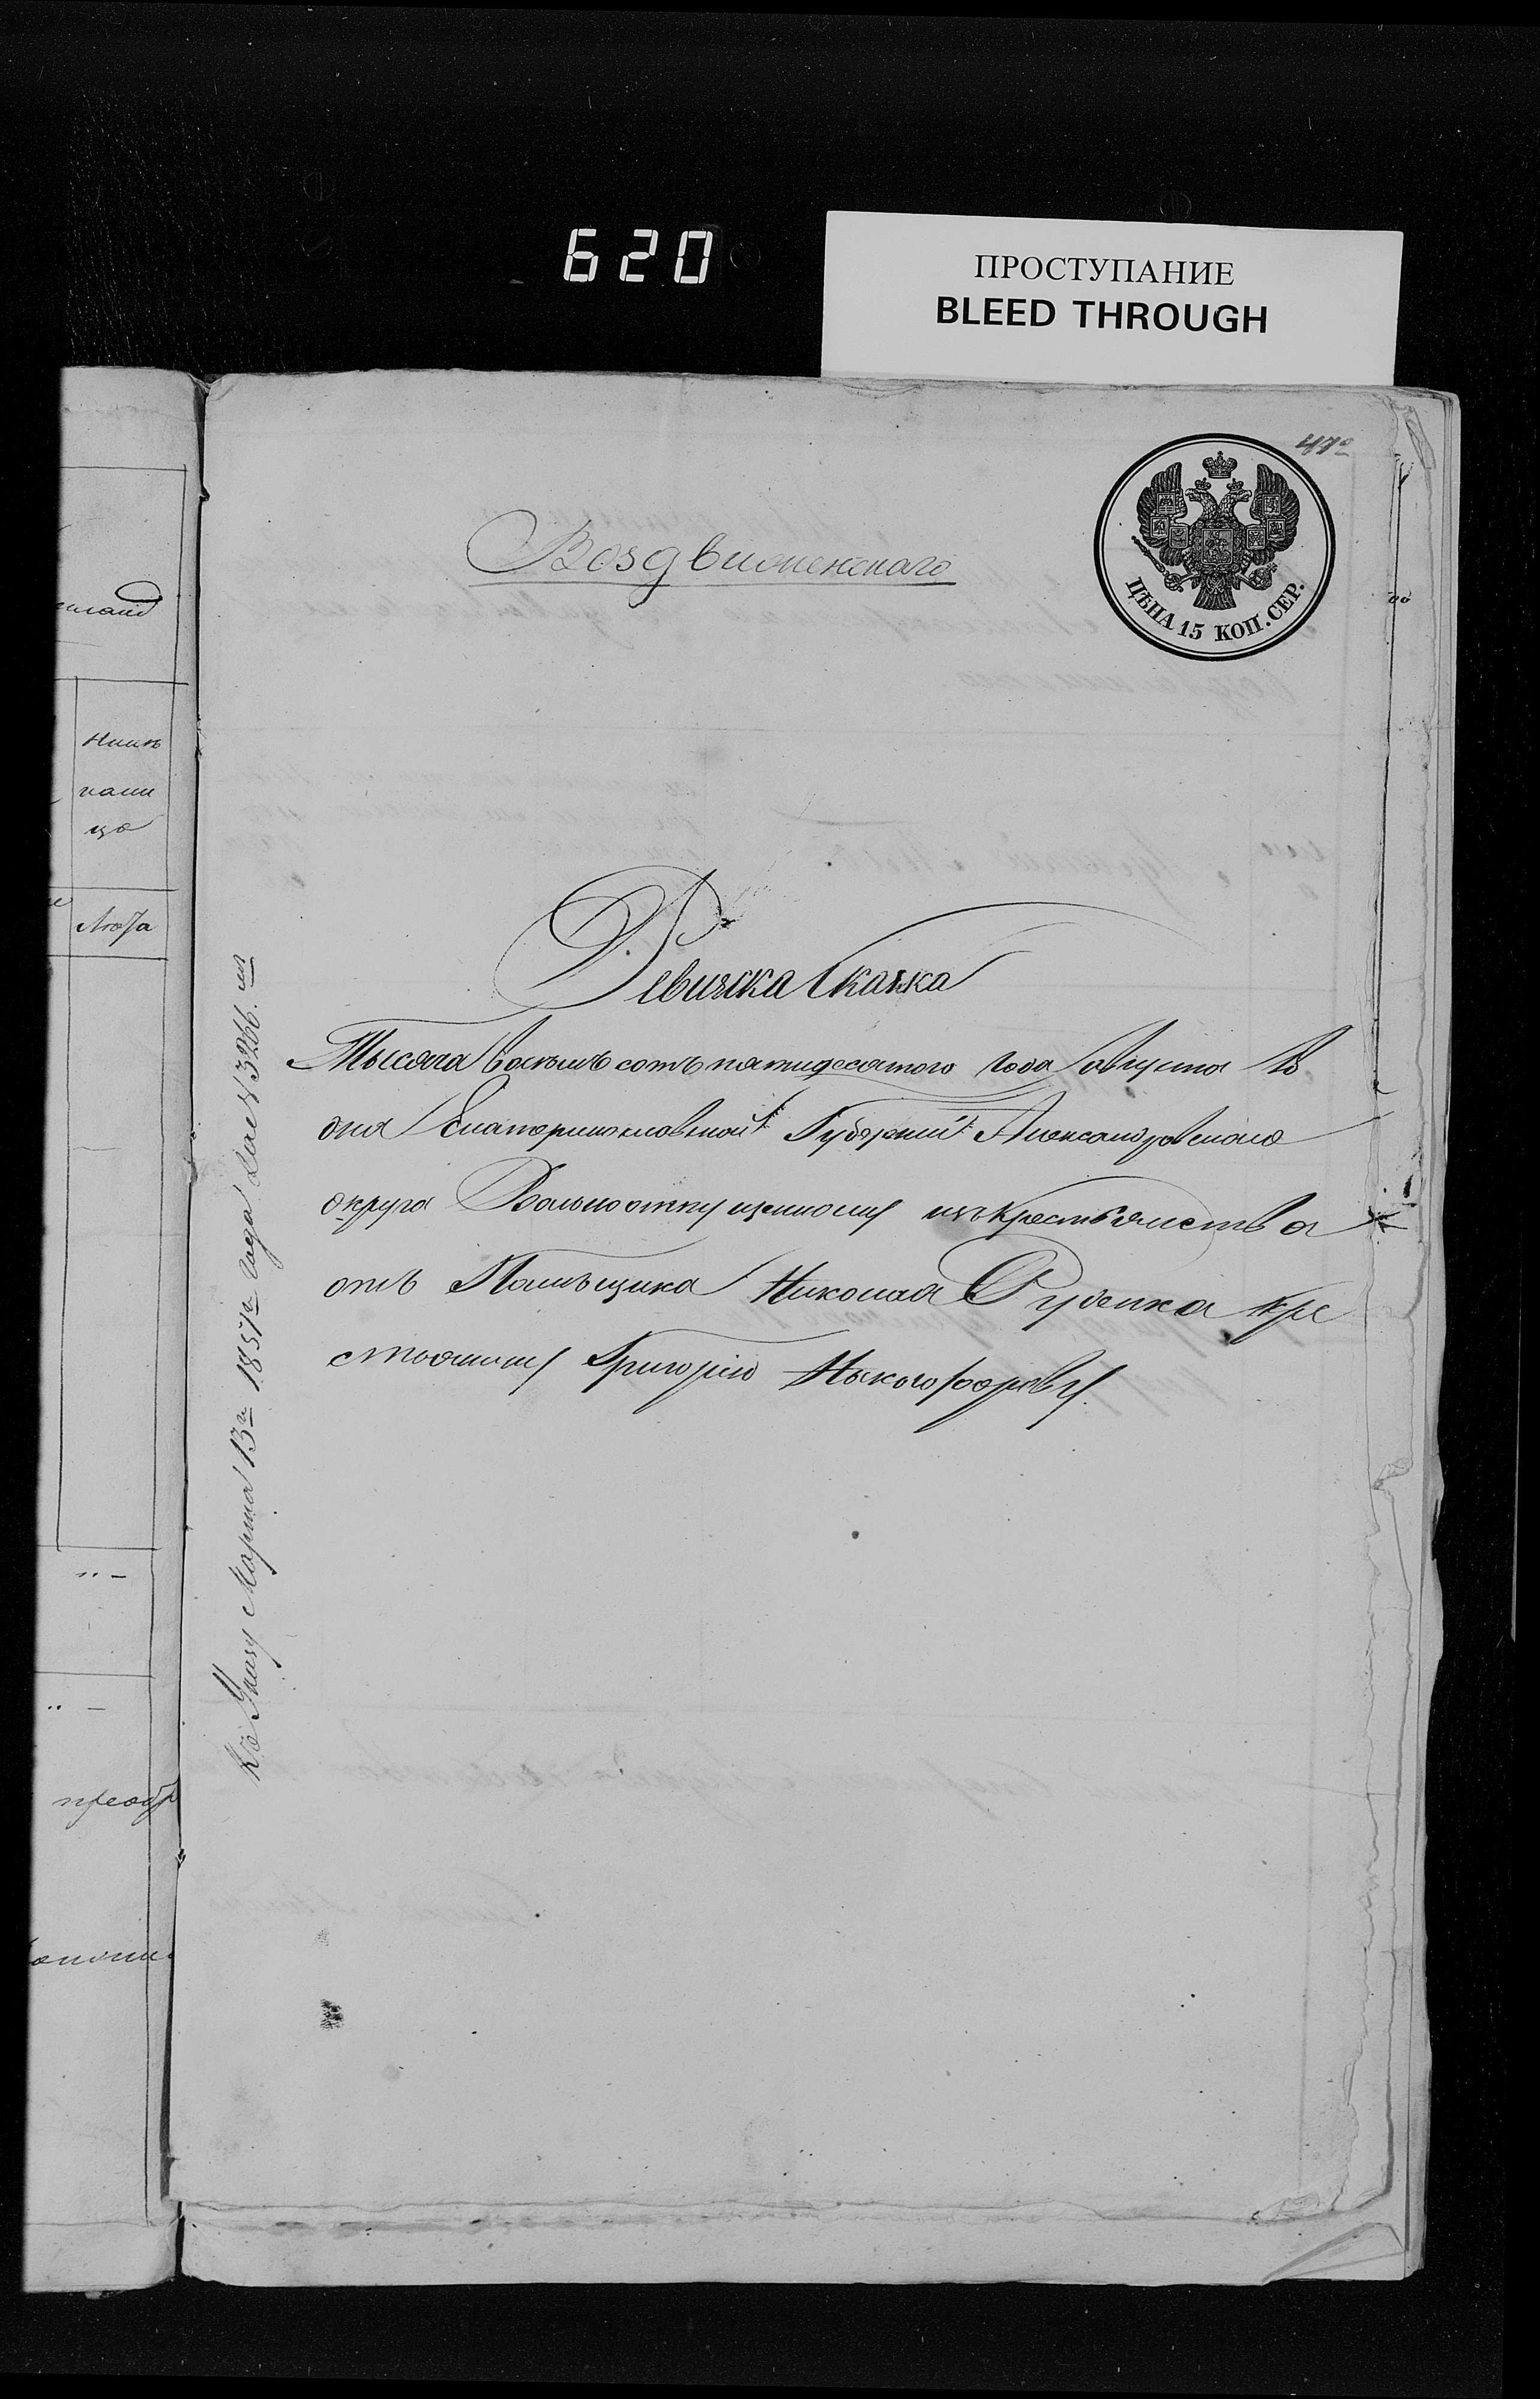 620
ПРОСТУПАНИЕ
BLEED THROUGH
470
ЦѢНА 15 КОП. СЕР.
Воздвиженскаго
Ревижска Сказка
Тысяча восѣмъ сотъ пятидесятого Года Августа
дня Екатеринославской Губерний Александровскаго
округа Вольноотпущенному изъ крестьянства
отъ Помѣщика Николая Руденка кре
стьянину Григорію Ныкогофорову.
Марта 13го 1857го года 3266.
преобр